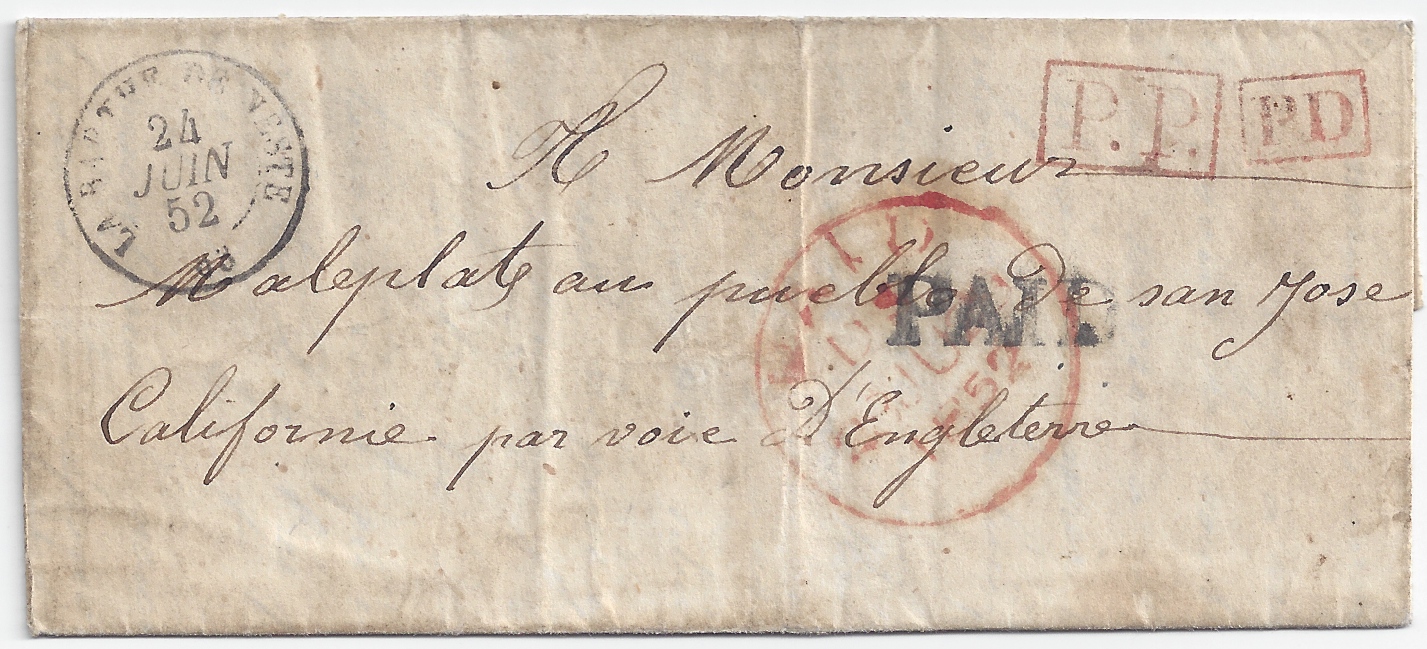 LA BARTHE DE NESTE
24
JUIN
52
P.P. PD
A Monsieur
Maleplate au pueblo De san Jose
PAID
PAID
52
Californie par voie D'Engleterre